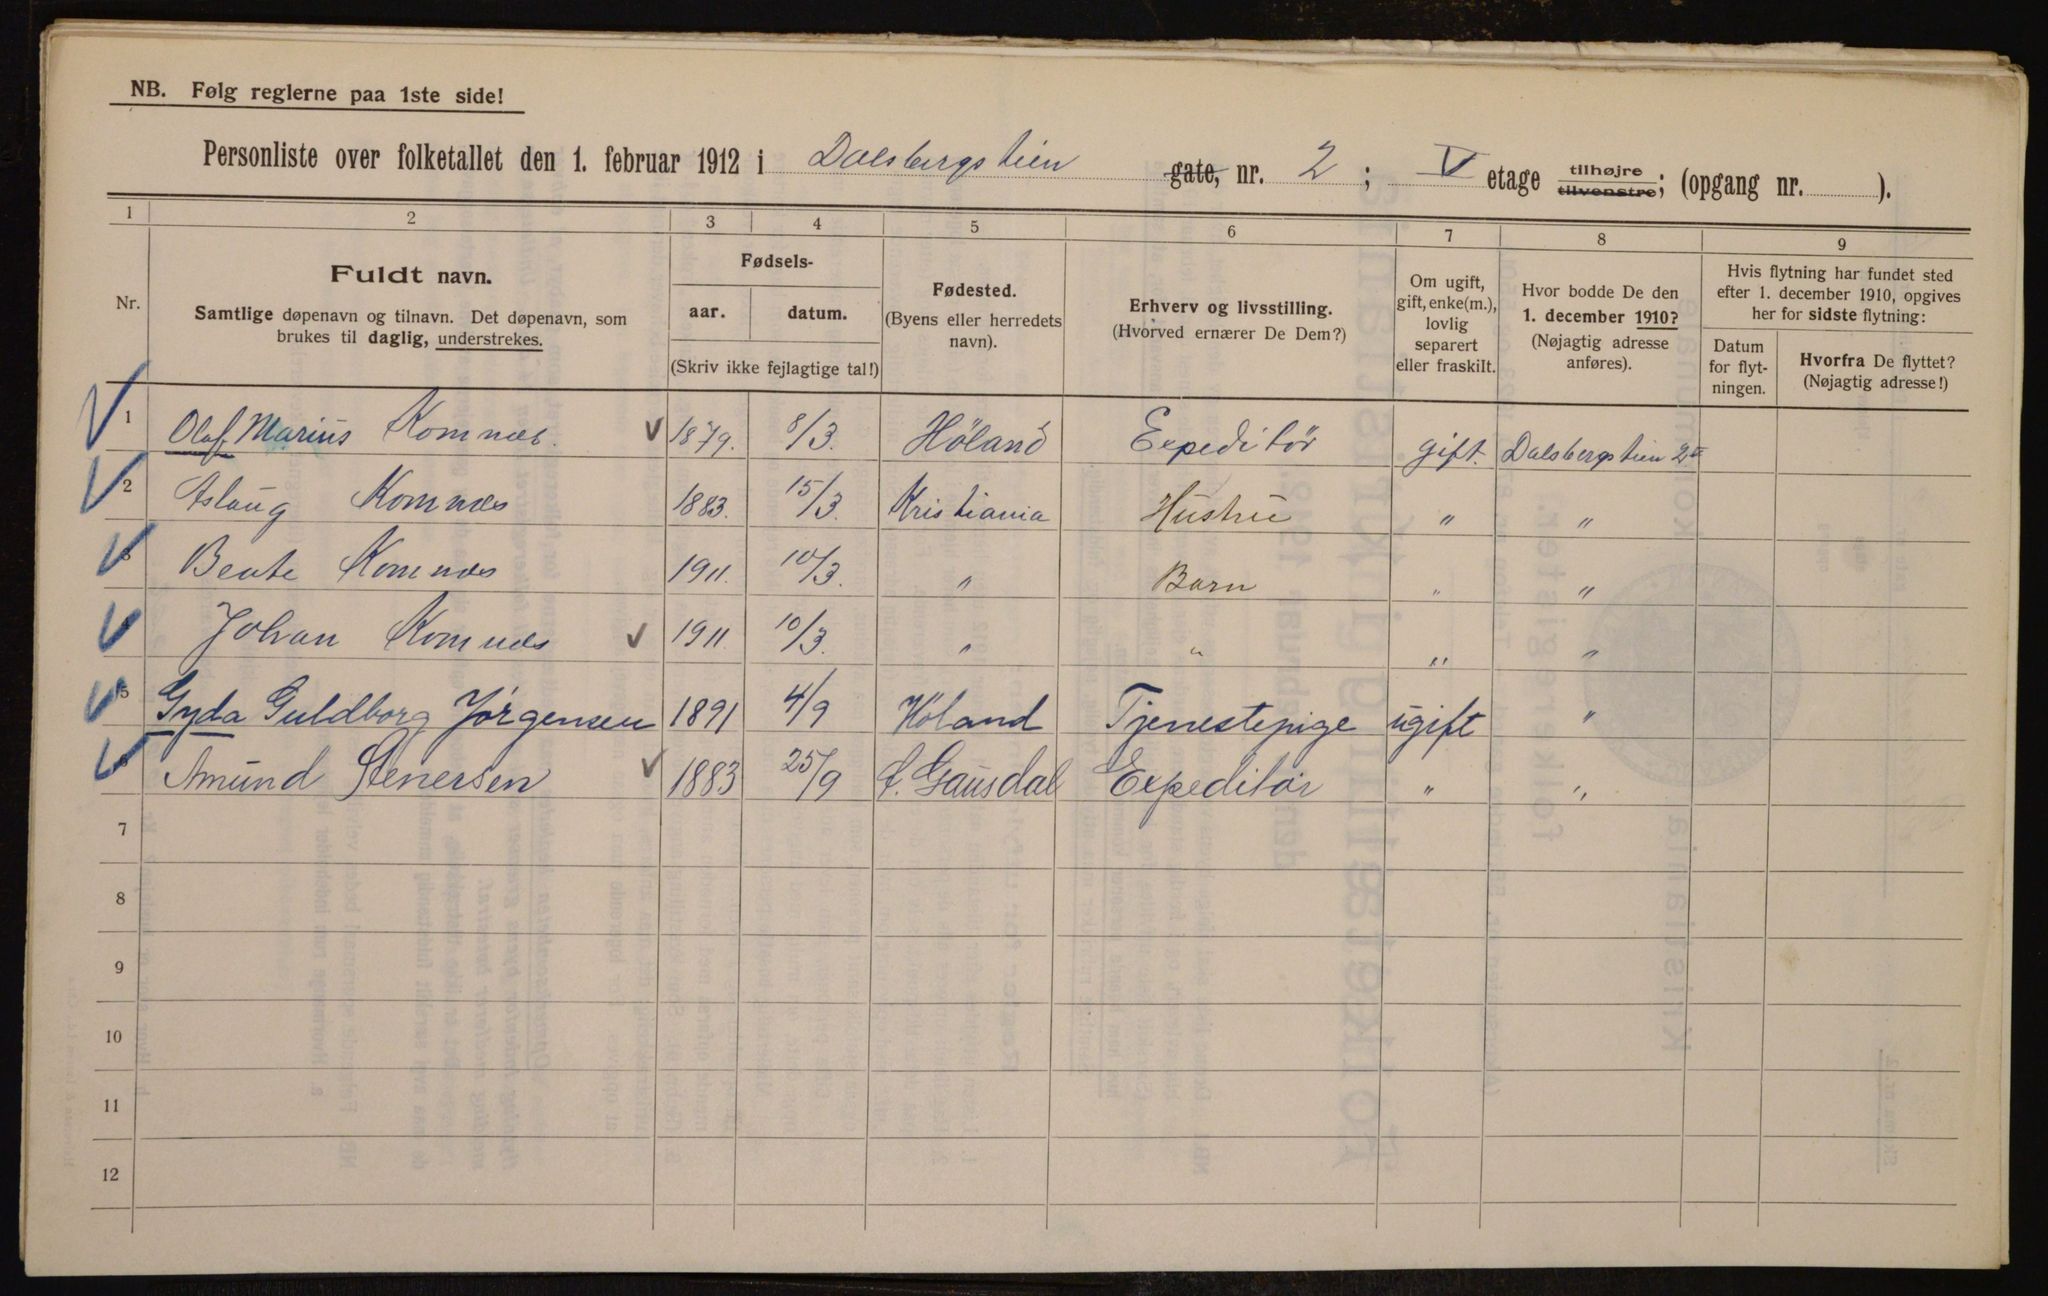 NB. Følg reglerne paa 1ste side!
Personliste over folketallet den 1. februar 1912 i Dalsbergstien gate, nr. 2 ; V etage tilhøjre tilvenstre; (opgang nr. ).
1 2 3 4 5 6 7 8 9
Nr.
Fuldt navn.
Samtlige døpenavn og tilnavn. Det døpenavn, som
brukes til daglig, understrekes.
Fødsels-
aar. datum.
(Skriv ikke fejlagtige tal!)
Fødested.
(Byens eller herredets
navn).
Erhverv og livsstilling.
(Hvorved ernærer De Dem?)
Om ugift,
gift, enke(m.),
lovlig
separert
eller fraskilt.
Hvor bodde De den
1. december 1910?
(Nøjagtig adresse
anføres).
Hvis flytning har fundet sted
efter 1. december 1910, opgives
her for sidste flytning:
Datum
for flyt-
ningen.
Hvorfra De flyttet?
(Nøjagtig adresse!)
1 Olaf Marius Komnæs. 1879. 8/3. Høland Expeditør gift. Dalsbergstien 2 II
2 Aslaug Komnæs 1883. 15/3. Kristiania Hustru " "
3 Beate Komnæs 1911. 10/3. " Barn " "
Johan Komnæs 1911. 10/3. " " " "
5 Gyda Guldborg Jørgensen 1891 4/9 Høland Tjenestepige ugift "
6 Amund Stenersen 1883 25/9 Gausdal Expeditør " "
7
8
9
10
11
12